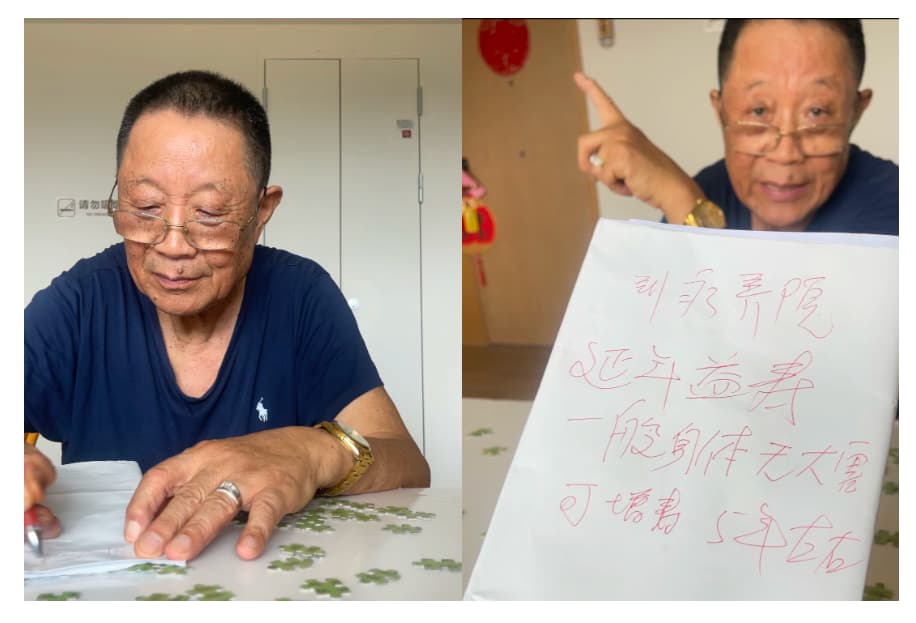 请勿吸
到永养院
延年益寿
一般身体无大
可增寿 5年左右